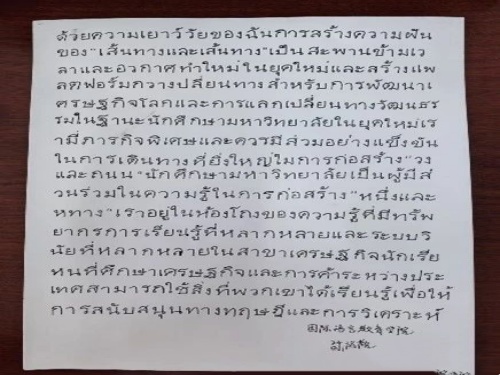 ด้วยความเยาว์วัยของฉันการสร้างความฝัน
ของ"เส้นทางและเส้นทาง"เป็นสะพานข้ามเว
ลาและอวกาศทำใหม่ในยุคใหม่และสร้างแพ
ลตฟอร์มกวางปลี่ยนทางสำหรับการพัฒนาเ
ศรษฐกิจโลกและการแลกเปลี่ยนทางวัฒนธร
รมในฐานะนักศึกษามหาวิทยาลัยในยุคใหม่เร
ามีภารกิจพิเศษและควรมีส่วมอย่างแข็งขัน
ในการเดินทางที่ยิ่งใหญ่ในการก่อสร้าง"วง
และถนน"นักศึกษามหาวิทยาลัยเป็นผู้มีส่
วนร่วมในความรู้ในการก่อสร้าง"หนึ่งและ
หทาง"เราอยู่ในห้องโถงของความรู้ที่มีทรัพ
ยากรการเรียนรู้ที่หลากหลายและระบบวิ
นัยที่หลากหลายในสาขาเศรษฐกิจนักเรีย
หนที่ศึกษาเศรษฐกิจและการค้าระหว่างประ
เทศสามารถใช้สิ่งที่พวกเขาได้เรียนรู้เพื่อให้
การสนับสนุนทางทฤษฎีและการวิเคราะห์
国际语言教育学院